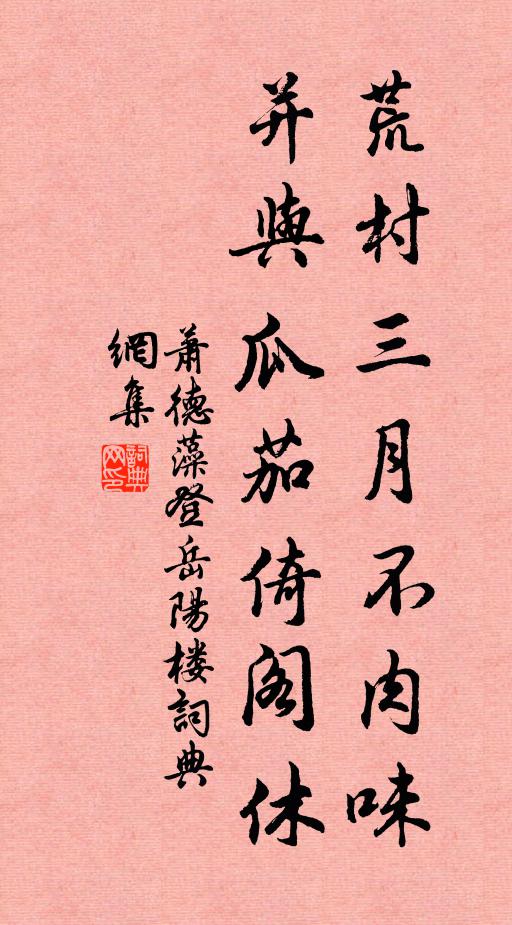 荒村三月不肉味
并與瓜茄倚閣休
蕭德藻登岳陽樓詞典
網集
詞典
网印